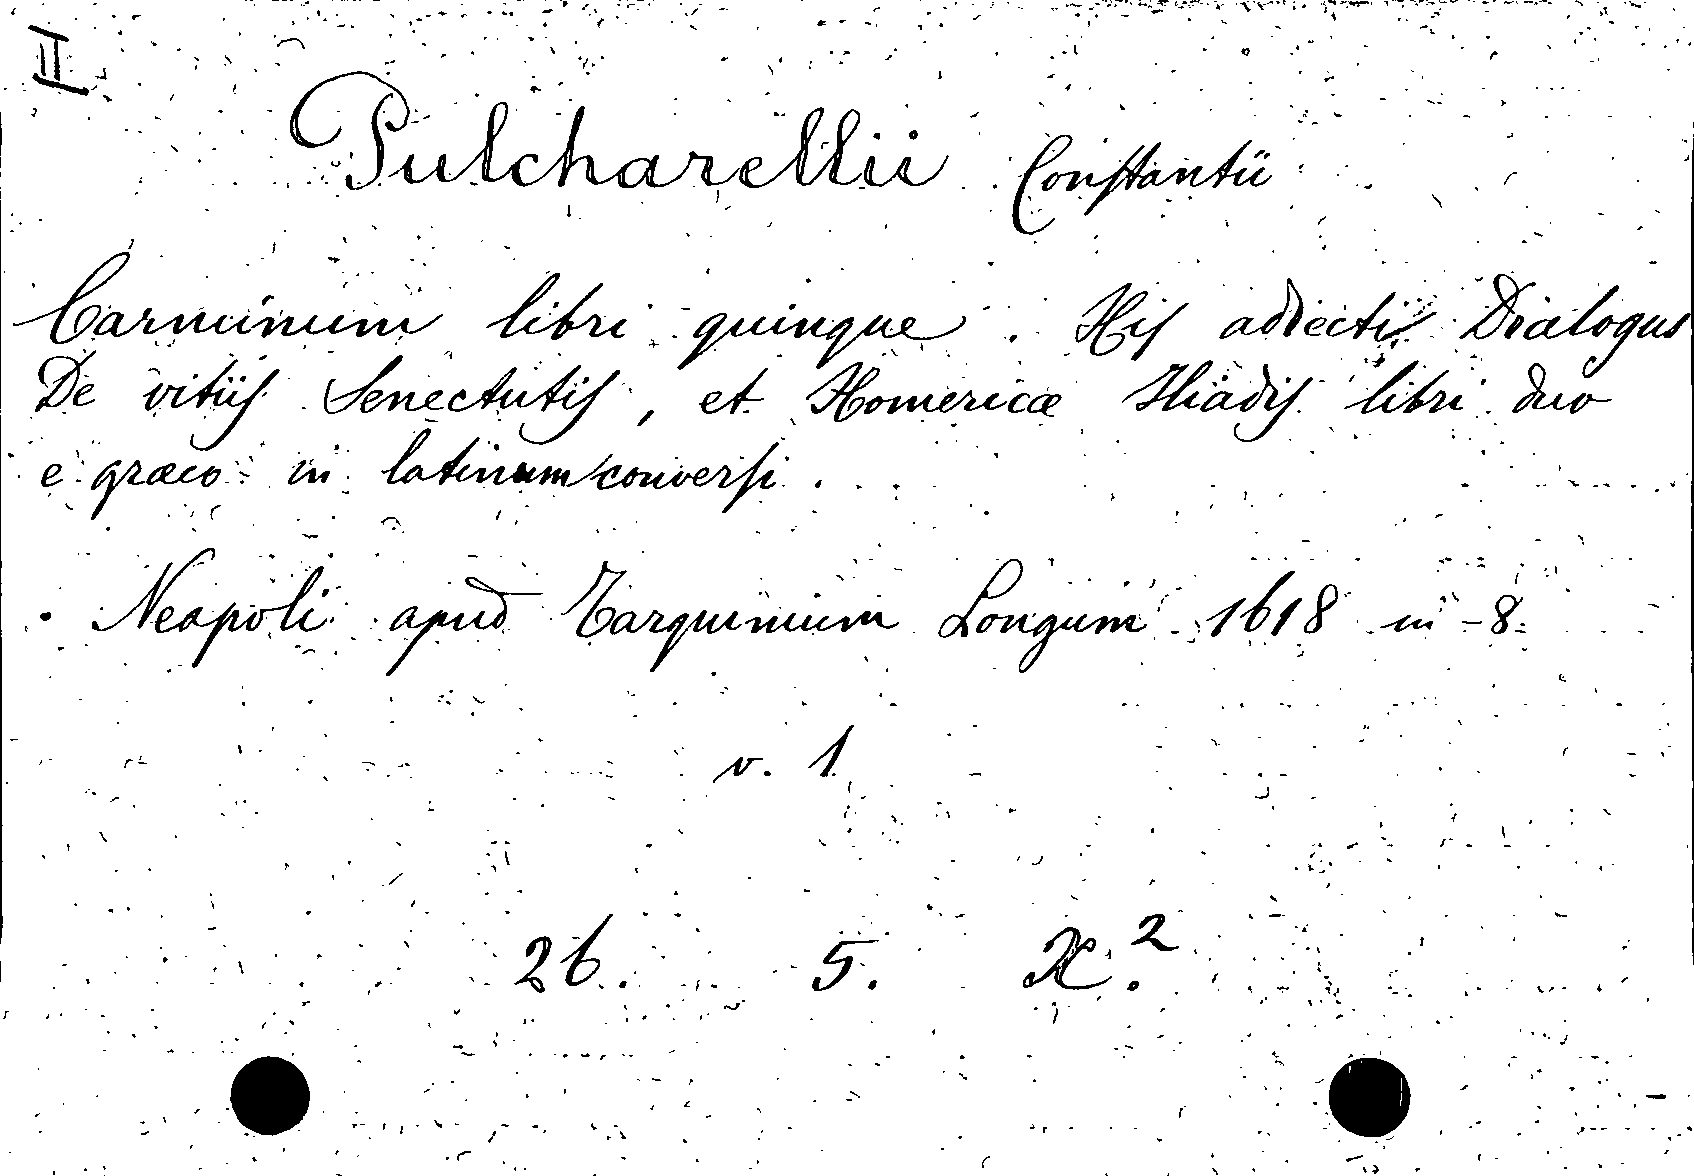 II
Pulcharellii Constantii
Carminum libri quinque. His adiecti Dialogus
De vitiis Senectutis, et Homericæ Iliadis libri duo
e græco in latinum conversi.
Neapoli apud Tarquinium Longum 1618 in-8
v. 1
26. 5. X.²